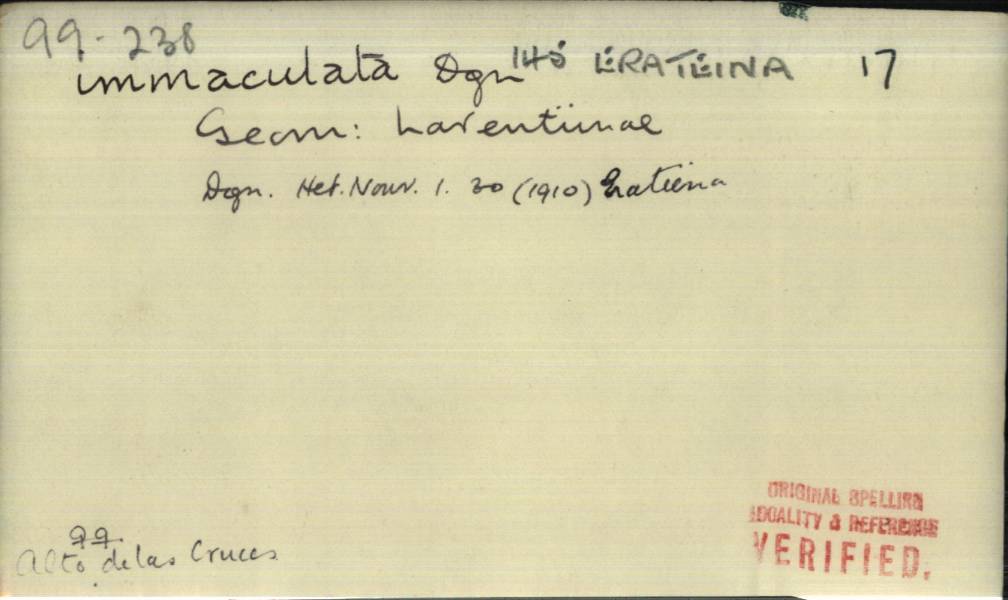 99-238
immaculata Dgn 145 ERATEINA 17
Geom: Larentiinae
Dgn. Het. Nouv. 1. 30 (1910) Erateina
99.
Alto de las Cruces
ORIGINAL SPELLING
LOCALITY & REFERENCE
VERIFIED.